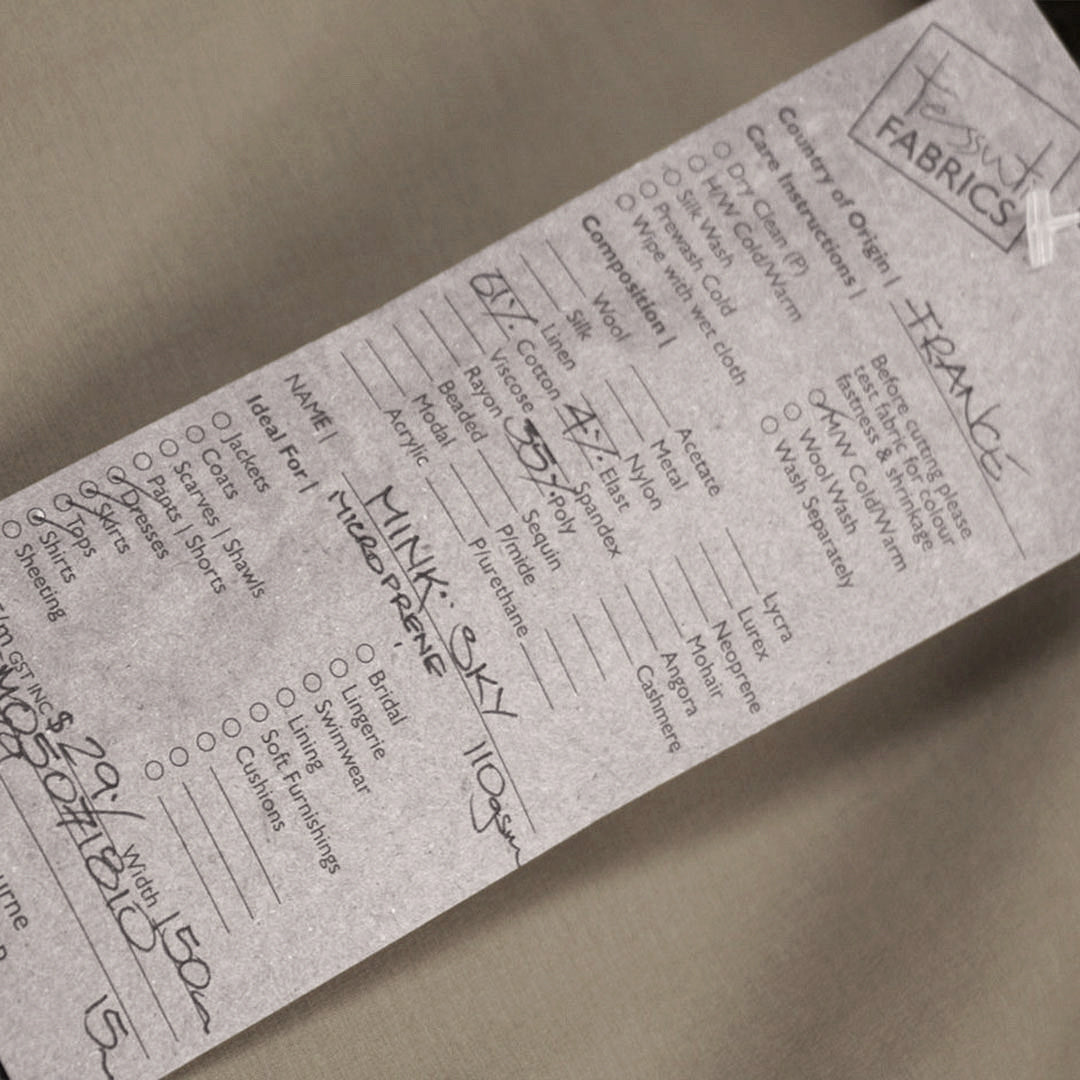 Tessuti
FABRICS
Country of Origin | FRANCE
Care Instructions |
Dry Clean (P)
H/W Cold/Warm
Silk Wash
Prewash Cold
Wipe with wet cloth
Before cutting please
test fabric for colour
fastness & shrinkage
M/W Cold/Warm
Wool Wash
Wash Separately
Composition |
Wool Acetate Lycra
Silk Metal Lurex
Linen Nylon Neoprene
61% Cotton 4% Elast Mohair
Viscose Spandex Angora
Rayon 35% Poly Cashmere
Beaded Sequin
Modal P/mide
Acrylic P/urethane
NAME | MINK: SKY 110gsm
MICROPRENE
Ideal For |
Jackets
Coats
Scarves | Shawls
Pants | Shorts
Dresses
Skirts
Tops
Shirts
Sheeting
Bridal
Lingerie
Swimwear
Lining
Soft Furnishings
Cushions
/m GST INC $ 29./ Width 150cm
15m
urne